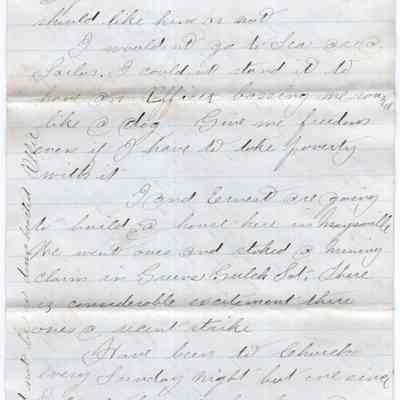 should like him or not
I would nt go to Sea as a
Sailor. I could nt stand it to
have an Officer bossing me round
like a dog Give me freedom
even if I have to take poverty
with it
I and Ernest are going
to build a house here in Marysville
He went over and staked a mining
claim in Greens Gulch Sat. There
is considerable excitement there
over a recent strike
Have been to Church
every Sunday night but one since